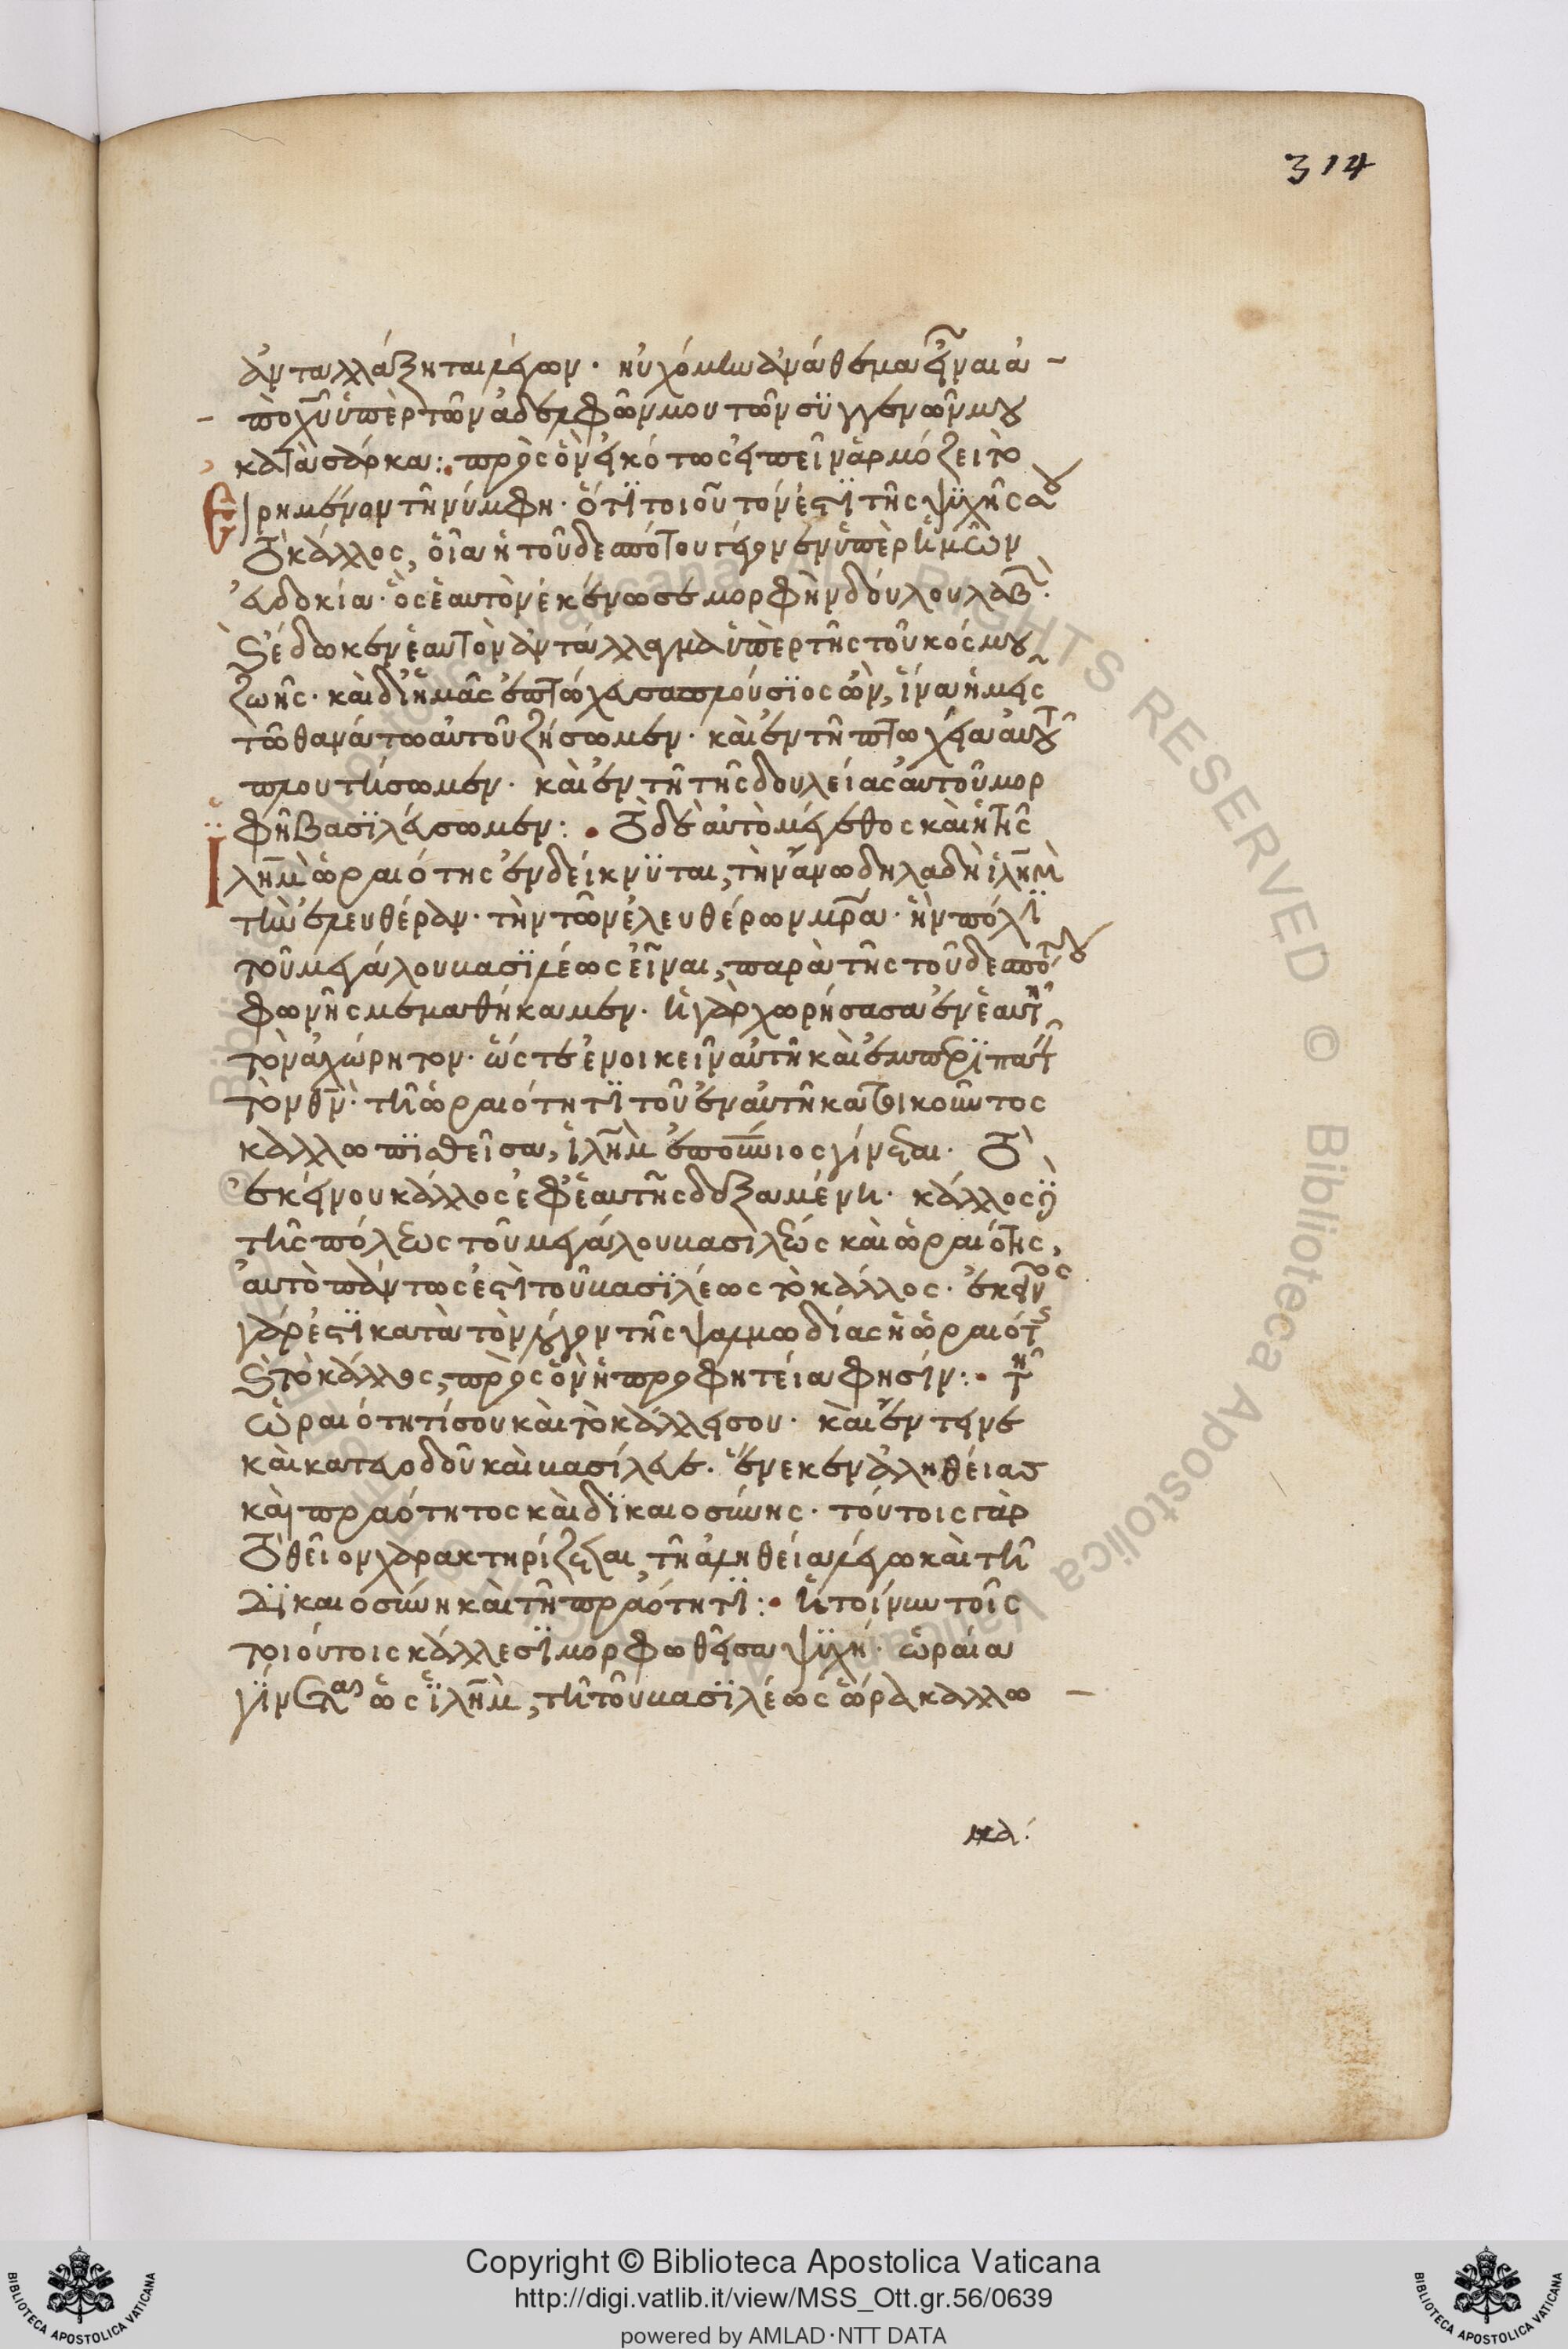 314
ἀνταλλάξηται λέγων· ηὐχόμην ἀνάθεμα εἶναι ἀ–
–πὸ χυ ὑπὲρ τῶν ἀδελφῶν μου τῶν συγγενῶν μου
κατὰ σάρκα:· πρὸς ὃν εἰκότως εἰπεῖν ἁρμόζει τὸ
εἰρημένον τῇ νύμφῃ· ὅτι τοιοῦτόν ἐστι τῆς ψυχῆς σου
τὸ κάλλος, οἵα ἡ τοῦ δεσπότου γέγονεν ὑπὲρ ἡμῶν
εὐδοκία· ὃς ἑαυτὸν ἐκένωσε μορφὴν δούλου λαβ·
καὶ ἔδωκεν ἑαυτὸν ἀντάλλαγμα ὑπὲρ τῆς τοῦ κόσμου
ζωῆς· καὶ δι' ἡμᾶς ἐπτώχευσε πλούσιος ὢν, ἵνα ἡμεῖς
τῷ θανάτῳ αὐτοῦ ζήσωμεν· καὶ ἐν τῇ πτωχείᾳ αὐτοῦ
πλουτήσωμεν· καὶ ἐν τῇ τῆς δουλείας αὐτοῦ μορ
φῇ βασιλεύσωμεν:· τὸ δὲ αὐτὸ μέγεθος καὶ ἡ τῆς
ἱλημ ὡραιότης ἐνδείκνυται, τὴν ἄνω δηλαδὴ ἱλημ
τὴν ἐλευθέραν· τὴν τῶν ἐλευθέρων μρα· ἣν πόλι
τοῦ μεγάλου βασιλέως εἶναι, παρὰ τῆς τοῦ δεσπότου
φωνῆς μεμαθήκαμεν· ἡ γὰρ χωρήσασα ἐν ἑαυτῇ
τὸν ἀχώρητον· ὥστε ἐνοικεῖν αὐτῇ καὶ ἐμπεριπατεῖν
τὸν θν· τῇ ὡραιότητι τοῦ ἐν αὐτῇ κατοικοῦντος
καλλωπισθεῖσα, ἱλημ ἐπουνιος γίνεται· τὸ
ἐκείνου κάλλος ἐφ' ἑαυτῆς δεξαμένη· κάλλος δὲ
τῆς πόλεως τοῦ μεγάλου βασιλέως καὶ ὡραιότης,
αὐτὸ πάντως ἐστὶ τοῦ βασιλέως τὸ κάλλος· ἐκείνου
γάρ ἐστι κατὰ τὸν λόγον τῆς ψαλμῳδίας ἡ ὡραιότης
καὶ τὸ κάλλος, πρὸς ὃν ἡ προφητεία φησίν:· τῇ
ὡραιότητί σου καὶ τὸ κάλλει σου· καὶ ἔντεινε
καὶ κατευοδοῦ καὶ βασίλευε· ἕνεκεν ἀληθείας
καὶ πραότητος καὶ δικαιοσύνης· τούτοις γὰρ
τὸ θεῖον χαρακτηρίζεται, τῇ ἀληθείᾳ λέγω καὶ τῇ
δικαιοσύνη καὶ τῇ πραότητι:· ἡ τοίνυν τοῖς
τοιούτοις κάλλεσι μορφωθεῖσα ψυχή· ὡραία
γίνεται ὡς ἱλημ, τῇ τοῦ βασιλέως ὥρα καλλω–
Copyright © Biblioteca Apostolica Vaticana
http://digi.vatlib.it/view/MSS_Ott.gr.56/0639
powered by AMLAD·NTT DATA